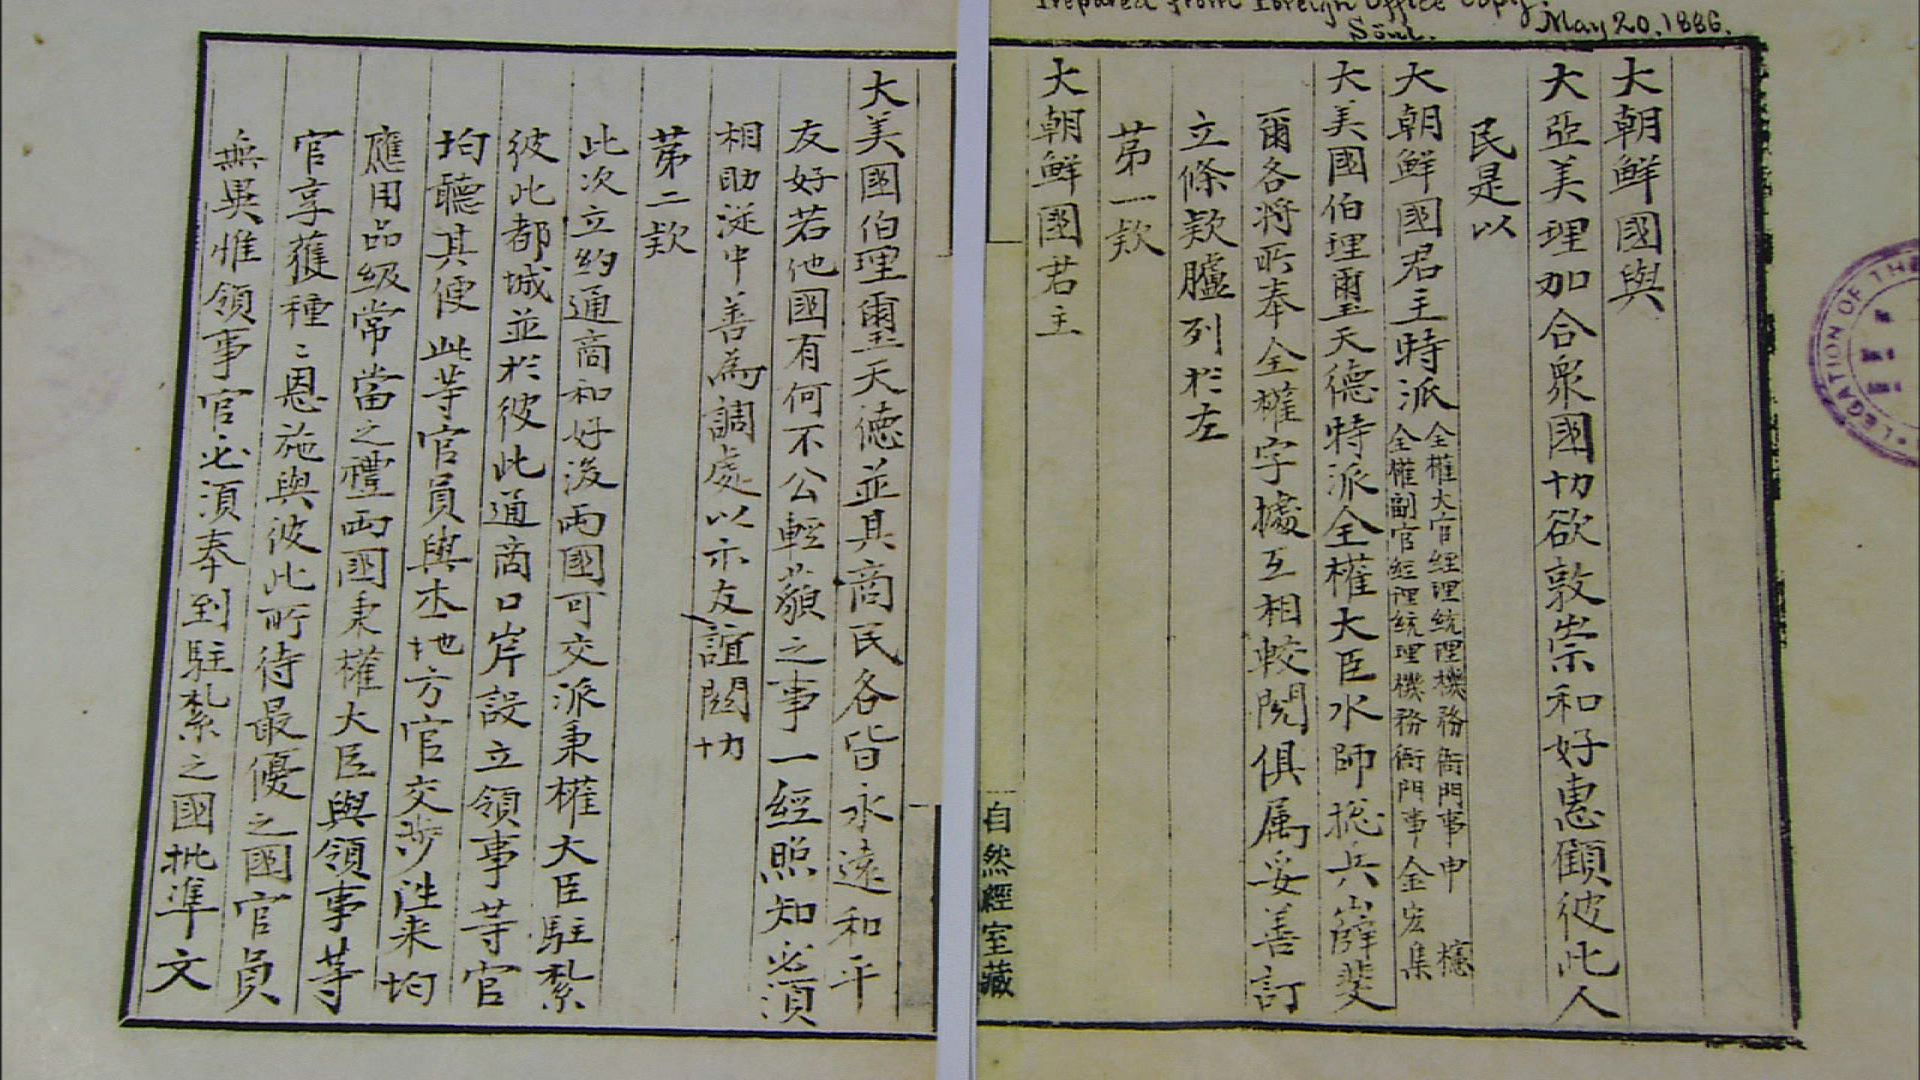 Prepared from Foreign Office Copy.
Söul. May 20. 1886.
大朝鮮國與
大亞美理加合衆國切欲敦崇和好惠顧彼此人
民是以
大朝鮮國君主特派
全權大官經理統理機務衙門事申櫶
全權副官經理統理機務衙門事金宏集
大美國伯理璽天德特派全權大臣水師總兵薛斐
爾各將所奉全權字據互相較閱俱属妥善訂
立條款臚列於左
苐一款
大朝鮮國君主
大美國伯理璽天德並其商民各皆永遠和平
友好若他國有何不公輕藐之事一經照知必湏
相助從中善為調處以示友誼関切
苐二款
此次立約通商和好後兩國可交派秉權大臣駐紮
彼此都城並於彼此通商口岸設立領事等官
均聽其便此等官員與本地方官交涉徃来均
應用品級常當之禮兩國秉權大臣與領事等
官享獲種〻恩施與彼此所待最優之國官員
無異惟領事官必須奉到駐紮之國批準文
自然經室藏
LEGATION OF TH